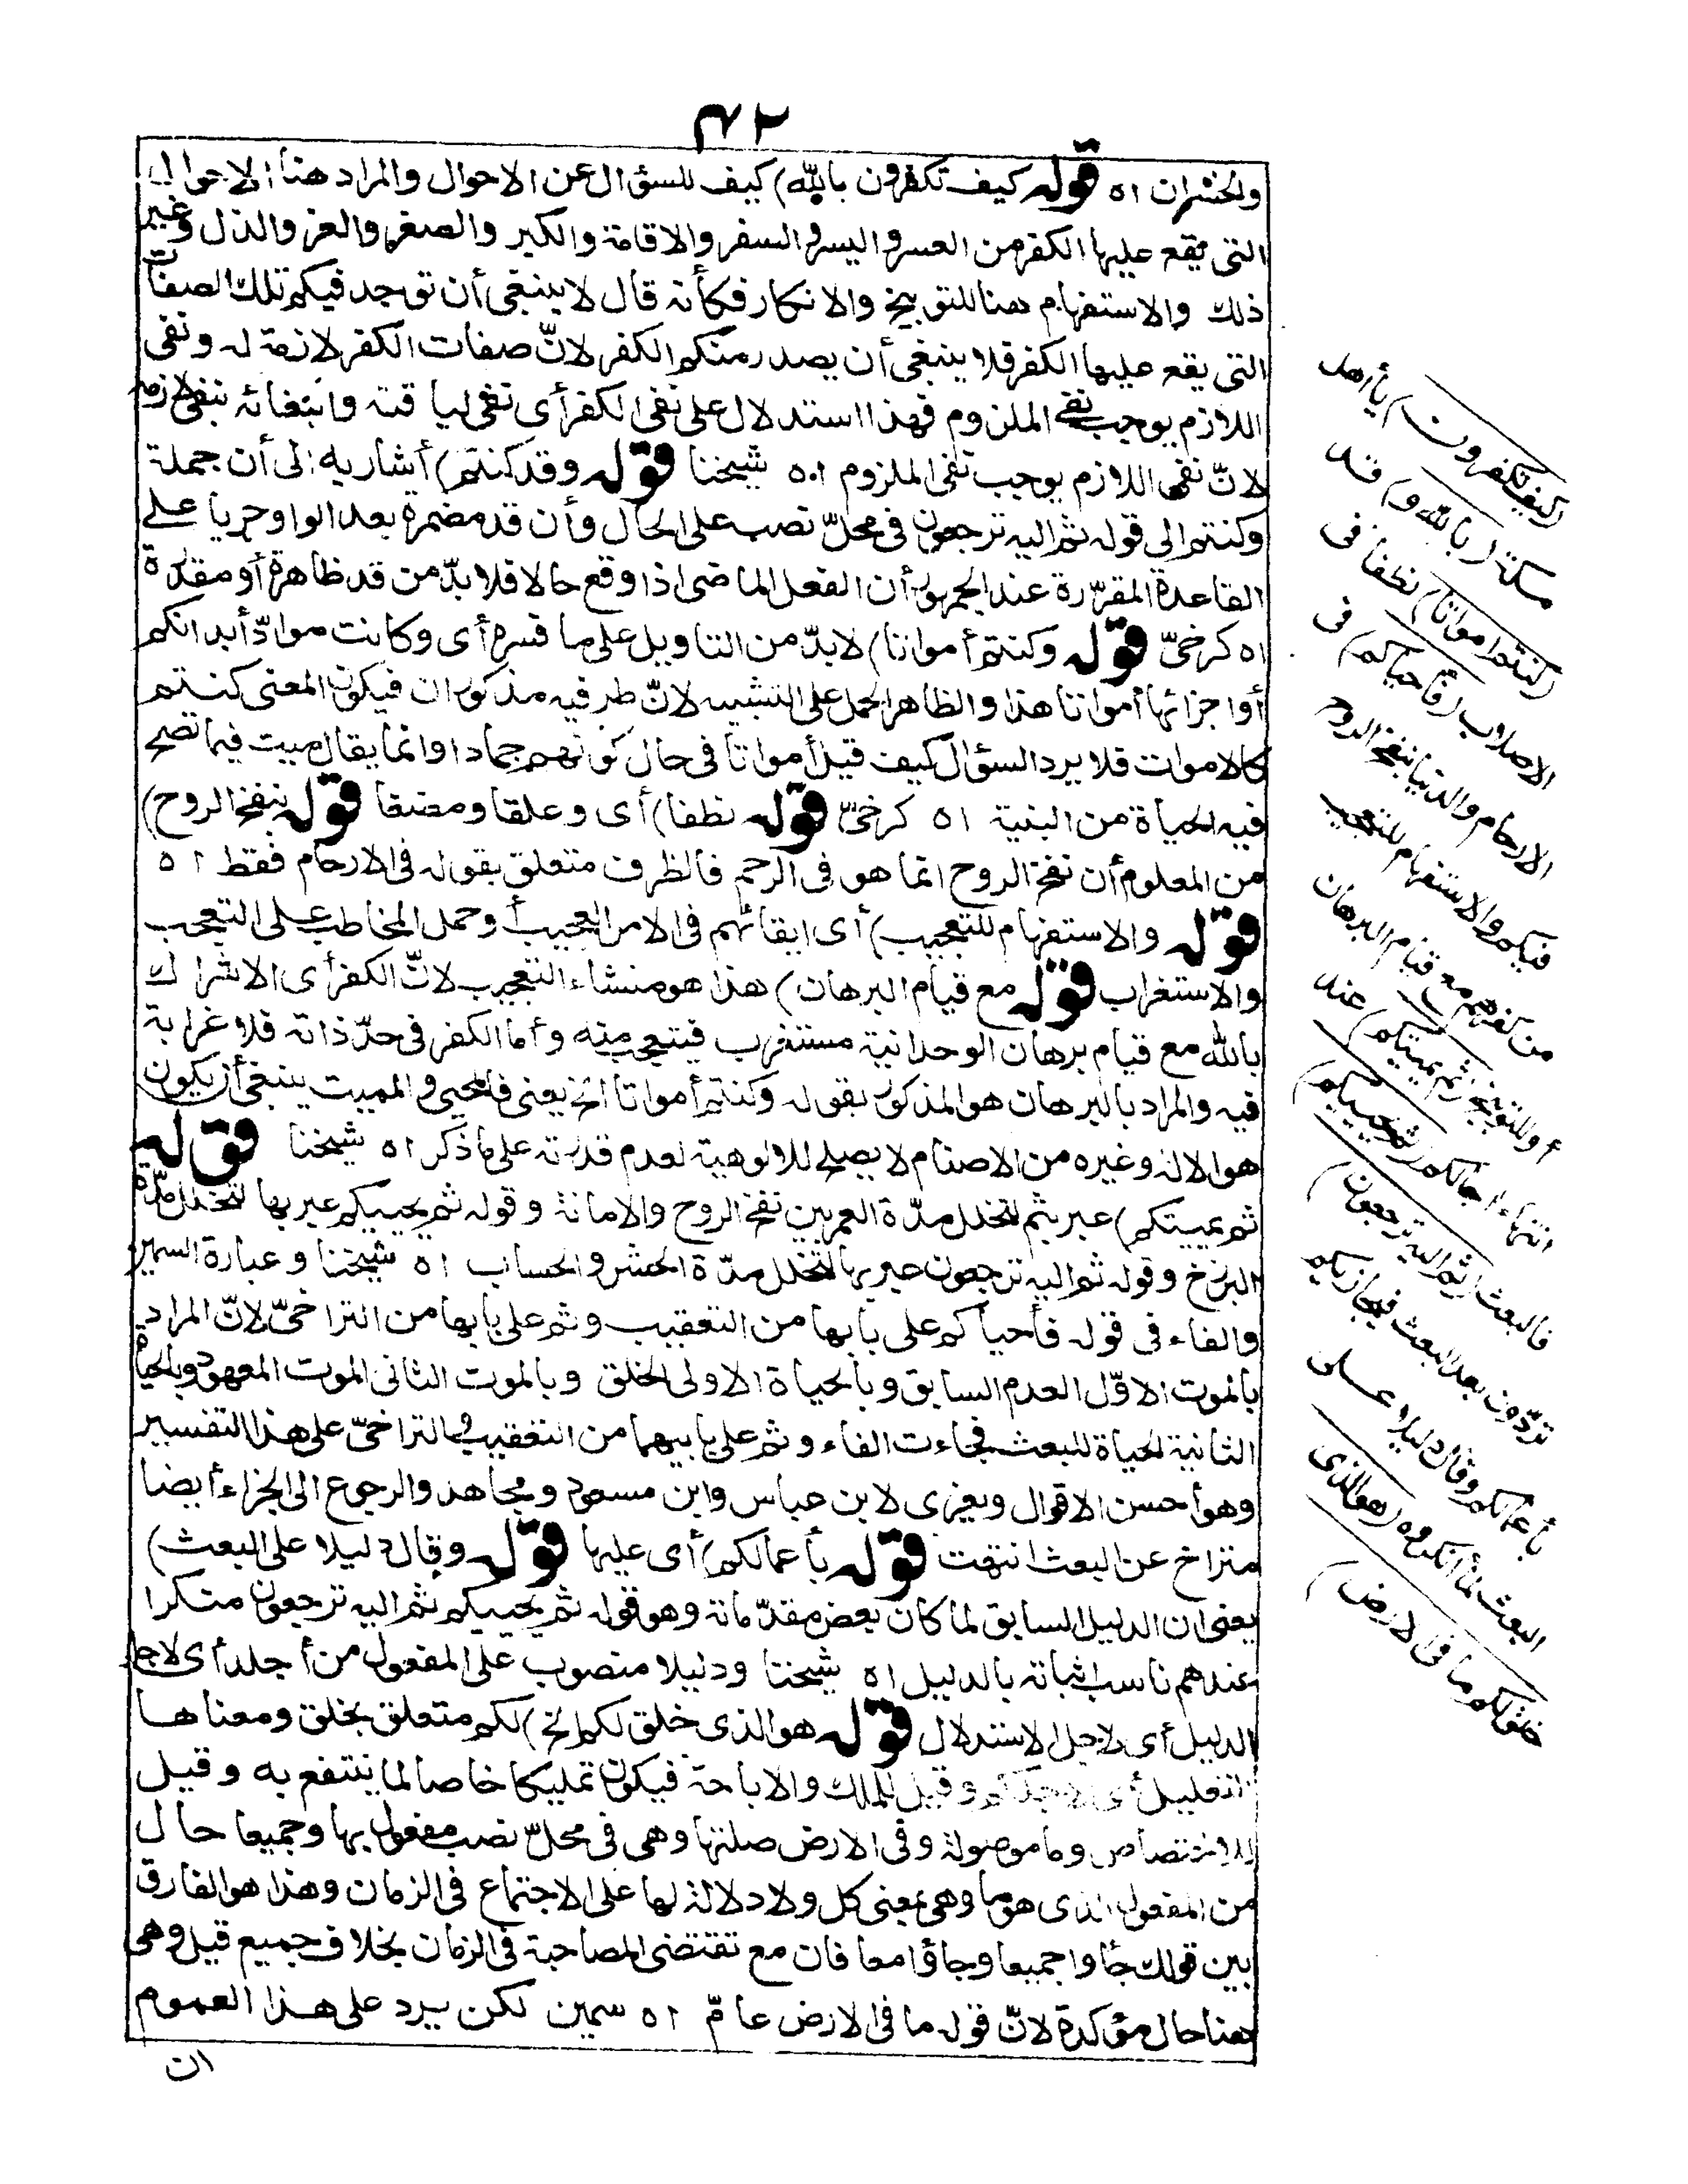 ٤٢
والخسران اه قوله كيف تكفرون بالله) كيف للسؤال عن الاحوال والمراد هنا الاحوال
التى يقع عليها الكفر من العسر واليسر والسفر والاقامة والكبر والصغر والعز والذل وغير
ذلك والاستفهام هنا للتوبيخ والانكار فكأنه قال لا ينبغى أن توجد فيكم تلك الصفات
التى يقع عليها الكفر فلا ينبغى أن يصدر منكم الكفر لانّ صفات الكفر لازمة له ونفى
اللازم يوجب نفى الملزوم فهذا استدلال على نفى الكفر أى نفى لياقته وانبغائه بنفى لازمه
لانّ نفى اللازم يوجب نفى الملزوم اه شيخنا قوله وقد كنتم) أشار به الى أن جملة
وكنتم الى قوله ثم اليه ترجعون فى محلّ نصب على الحال وأن قد مضمرة بعد الواو جريا على
القاعدة المقرّرة عند الجمهور أن الفعل الماضى اذا وقع حالا فلا بدّ من قد ظاهرة أو مقدّرة
اه كرخىّ قوله وكنتم أمواتا) لا بدّ من التاويل على ما فسره أى وكانت موادّ أبدانكم
أو اجزائها أمواتا هذا والظاهر الحمل على التشبيه لانّ طرفيه مذكوران فيكون المعنى كنتم
كالاموات فلا يرد السؤال كيف قيل أمواتا فى حال كونهم جمادا وانما يقال ميت فيما تصح
فيه الحياة من البنية اه كرخىّ قوله نطفا) أى وعلقا ومضغا قوله بنفخ الروح)
من المعلوم أن نفخ الروح انما هو فى الرحم فالظرف متعلق بقوله فى الارحام فقط اه
قوله والاستفهام للتعجيب) أى ايقائهم فى الامر العجيب أو حمل المخاطب على التعجب
والاستغراب قوله مع قيام البرهان) هذا هو منشاء التعجيب لانّ الكفر أى الاشراك
بالله مع قيام برهان الوحدانية مستغرب فيتعجب منه وأما الكفر فى حدّ ذاته فلا غرابة
فيه والمراد بالبرهان هو المذكور بقوله وكنتم أمواتا الخ يعنى فالمحيى والمميت ينبغى أن يكون
هو الاله وغيره من الاصنام لا يصلح للالوهية لعدم قدرته على ما ذكر اه شيخنا قوله
ثم يميتكم) عبر بثم لتخلل مدّة العمر بين نفخ الروح والاماتة وقوله ثم يحييكم عبر بها لتخلل مدّة
البرزخ وقوله ثم اليه ترجعون عبر بها لتخلل مدّة الحشر والحساب اه شيخنا وعبارة السمين
والفاء فى قوله فأحياكم على بابها من التعقيب وثم على بابها من التراخىّ لانّ المراد
بالموت الاوّل العدم السابق وبالحياة الاولى الخلق وبالموت الثانى الموت المعهود وبالحياة
الثانية الحياة للبعث فجاءت الفاء وثم على بابيهما من التعقيب والتراخىّ على هذا التفسير
وهو أحسن الاقوال ويعزى لابن عباس وابن مسعود ومجاهد والرجوع الى الجزاء أيضا
متراخ عن البعث انتهت قوله بأعمالكم) أى عليها قوله وقال دليلا على البعث)
يعنى ان الدليل السابق لما كان بعض مقدّماته وهو قوله ثم يحييكم ثم اليه ترجعون منكرا
عندهم ناسب اثباته بالدليل اه شيخنا ودليلا منصوب على المفعول من أجله أى لاجل
الدليل أى لاجل الاستدلال قوله هو الذى خلق لكم الخ) لكم متعلق بخلق ومعناها
التعليل أى لاجلكم وقيل للملك والاباحة فيكون تمليكا خاصا لما ينتفع به وقيل
للاختصاص وما موصولة وفى الارض صلتها وهى فى محلّ نصب مفعول بها وجميعا حال
من المفعول الذى هو ما وهى بمعنى كل ولا دلالة لها على الاجتماع فى الزمان وهذا هو الفارق
بين قولك جاؤا جميعا وجاؤا معا فان مع تقتضى المصاحبة فى الزمان بخلاف جميع قيل وهى
هنا حال مؤكدة لانّ قوله ما فى الارض عامّ اه سمين لكن يرد على هذا العموم
ان
(كيف تكفرون) يا أهل
مكة (بالله و) قد
(كنتم امواتا) نطفا فى
الاصلاب (فأحياكم) فى
الارحام والدنيا بنفخ الروح
فيكم والاستفهام للتعجيب
من كفرهم مع قيام البرهان
أو للتوبيخ (ثم يميتكم) عند
انتهاء اجالكم (ثم يحييكم)
بالبعث (ثم اليه ترجعون)
تردّون بعد البعث فيجازيكم
بأعمالكم وقال دليلا على
البعث لما أنكروه (هو الذى
خلق لكم ما فى الارض)